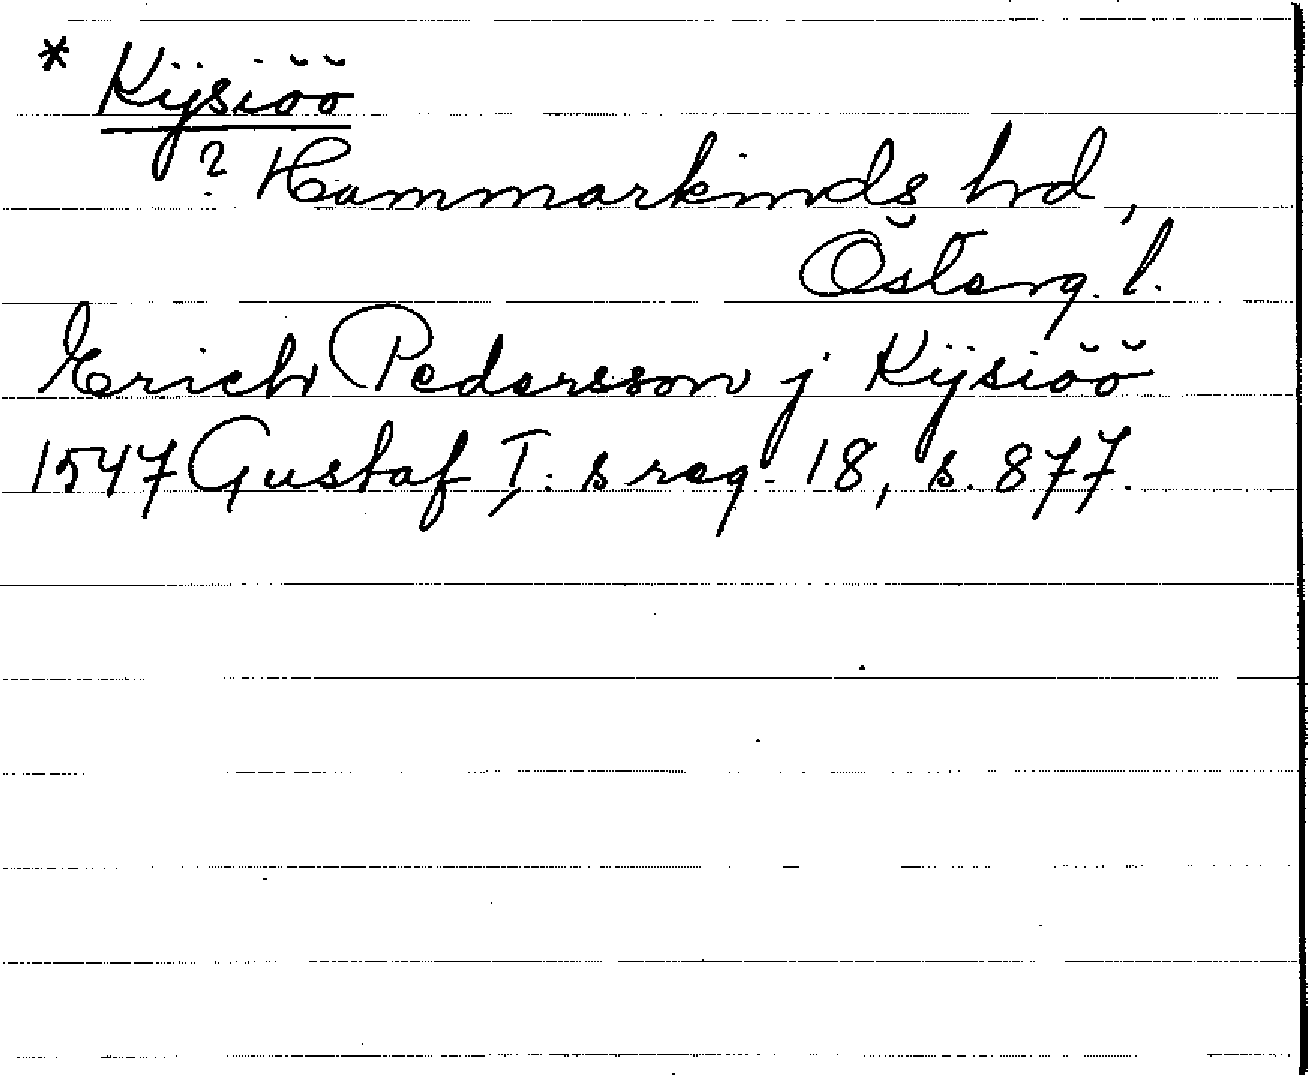 * Kijsiöö
? Hammarkinds hrd,
Österg. l.
Erich Pedersson j Kijsiöö
1547 Gustaf I:s reg. 18, s. 877.